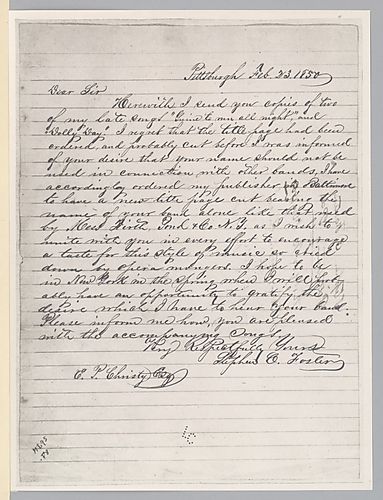 Pittsburgh Feb. 23. 1850
Dear Sir
Herewith I send you copies of two
of my late songs "Gwine to run all night," and
"Dolly Day". I regret that the title page had been
ordered, and probably cut before I was informed
of your desire that your name should not be
used in connection with other bands. I have
accordingly ordered my publisher in Baltimore
to have a new title page cut bearing the
name of your band alone like that used
by Mess. Firth, Pond & Co N.Y. as I wish to
unite with you in every effort to encourage
a taste for this style of music so cried
down by opera mongers. I hope to be
in New York in the Spring when I will prob-
ably have an opportunity to gratify the
desire which I have to hear your band.
Please inform me how you are pleased
with the accompanying songs.
Very Respectfully Yours
Stephen C. Foster
E. P. Christy Esq